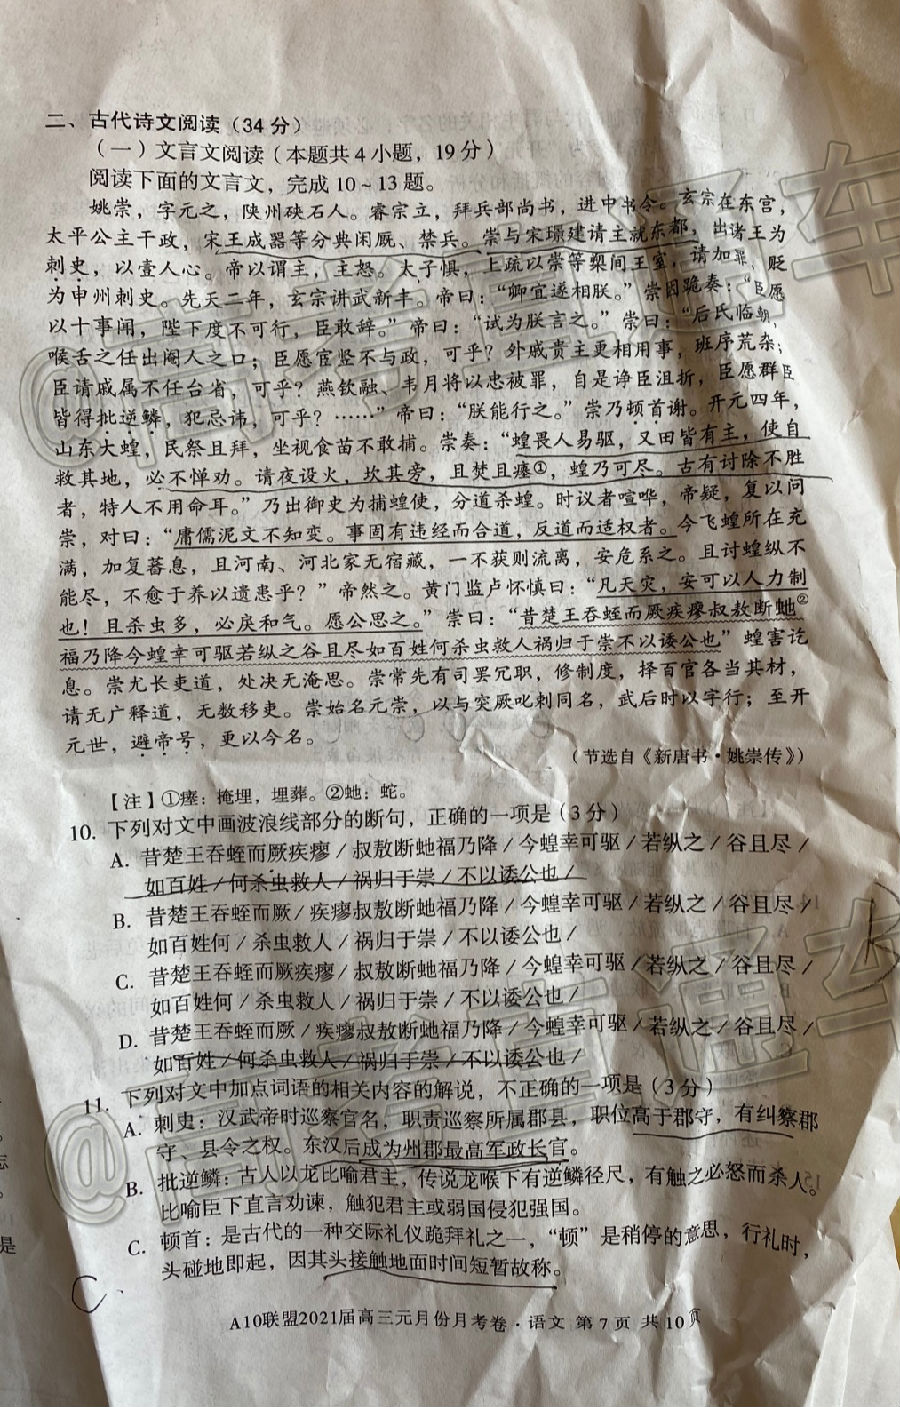 二、古代诗文阅读（34分）
（一）文言文阅读（本题共4小题，19分）
阅读下面的文言文，完成10~13题。
姚崇，字元之，陕州硖石人。睿宗立，拜兵部尚书，进中书令。玄宗在东宫，
太平公主干政，宋王成器等分典闲厩、禁兵。崇与宋璟建请主就东都，出诸王为
刺史，以壹人心。帝以谓主，主怒。太子惧，上疏以崇等槊间王室，请加罪，贬
为申州刺史。先天二年，玄宗讲武新丰。帝曰：“卿宜遂相朕。”崇因跪奏：“臣愿
以十事闻，陛下度不可行，臣敢辞。”帝曰：“试为朕言之。”崇曰：“后氏临朝，
喉舌之任出阉人之口；臣愿宦竖不与政，可乎？外戚贵主更相用事，班序荒杂；
臣请戚属不任台省，可乎？燕钦融、韦月将以忠被罪，自是诤臣沮折，臣愿群臣
皆得批逆鳞，犯忌讳，可乎？……”帝曰：“朕能行之。”崇乃顿首谢。开元四年，
山东大蝗，民祭且拜，坐视食苗不敢捕。崇奏：“蝗畏人易驱，又田皆有主，使自
救其地，必不惮劝。请夜设火，坎其旁，且焚且瘗①，蝗乃可尽。古有讨除不胜
者，特人不用命耳。”乃出御史为捕蝗使，分道杀蝗。时议者喧哗，帝疑，复以问
崇，对曰：“庸儒泥文不知变。事固有违经而合道，反道而适权者。今飞蝗所在充
满，加复蕃息，且河南、河北家无宿藏，一不获则流离，安危系之。且讨蝗纵不
能尽，不愈于养以遗患乎？”帝然之。黄门监卢怀慎曰：“凡天灾，安可以人力制
也！且杀虫多，必戾和气。愿公思之。”崇曰：“昔楚王吞蛭而厥疾瘳叔敖断虵②
福乃降今蝗幸可驱若纵之谷且尽如百姓何杀虫救人祸归于崇不以诿公也”蝗害讫
息。崇尤长吏道，处决无淹思。崇常先有司罢冗职，修制度，择百官各当其材，
请无广释道，无数移吏。崇始名元崇，以与突厥叱剌同名，武后时以字行；至开
元世，避帝号，更以今名。
（节选自《新唐书·姚崇传》）
【注】①瘗：掩埋，埋葬。②虵：蛇。
10. 下列对文中画波浪线部分的断句，正确的一项是（3分）
A. 昔楚王吞蛭而厥疾瘳/叔敖断虵福乃降/今蝗幸可驱/若纵之/谷且尽/
如百姓/何杀虫救人/祸归于崇/不以诿公也/
B. 昔楚王吞蛭而厥/疾瘳叔敖断虵福乃降/今蝗幸可驱/若纵之/谷且尽/
如百姓何/杀虫救人/祸归于崇/不以诿公也/
C. 昔楚王吞蛭而厥疾瘳/叔敖断虵福乃降/今蝗幸可驱/若纵之/谷且尽/
如百姓何/杀虫救人/祸归于崇/不以诿公也/
D. 昔楚王吞蛭而厥/疾瘳叔敖断虵福乃降/今蝗幸可驱/若纵之/谷且尽/
如百姓/何杀虫救人/祸归于崇/不以诿公也/
11. 下列对文中加点词语的相关内容的解说，不正确的一项是（3分）
A. 刺史：汉武帝时巡察官名，职责巡察所属郡县，职位高于郡守，有纠察郡
守、县令之权。东汉后成为州郡最高军政长官。
B. 批逆鳞：古人以龙比喻君主，传说龙喉下有逆鳞径尺，有触之必怒而杀人。
比喻臣下直言劝谏，触犯君主或弱国侵犯强国。
C. 顿首：是古代的一种交际礼仪跪拜礼之一，“顿”是稍停的意思，行礼时，
头碰地即起，因其头接触地面时间短暂故称。
C
A10联盟2021届高三元月份月考卷·语文 第7页 共10页